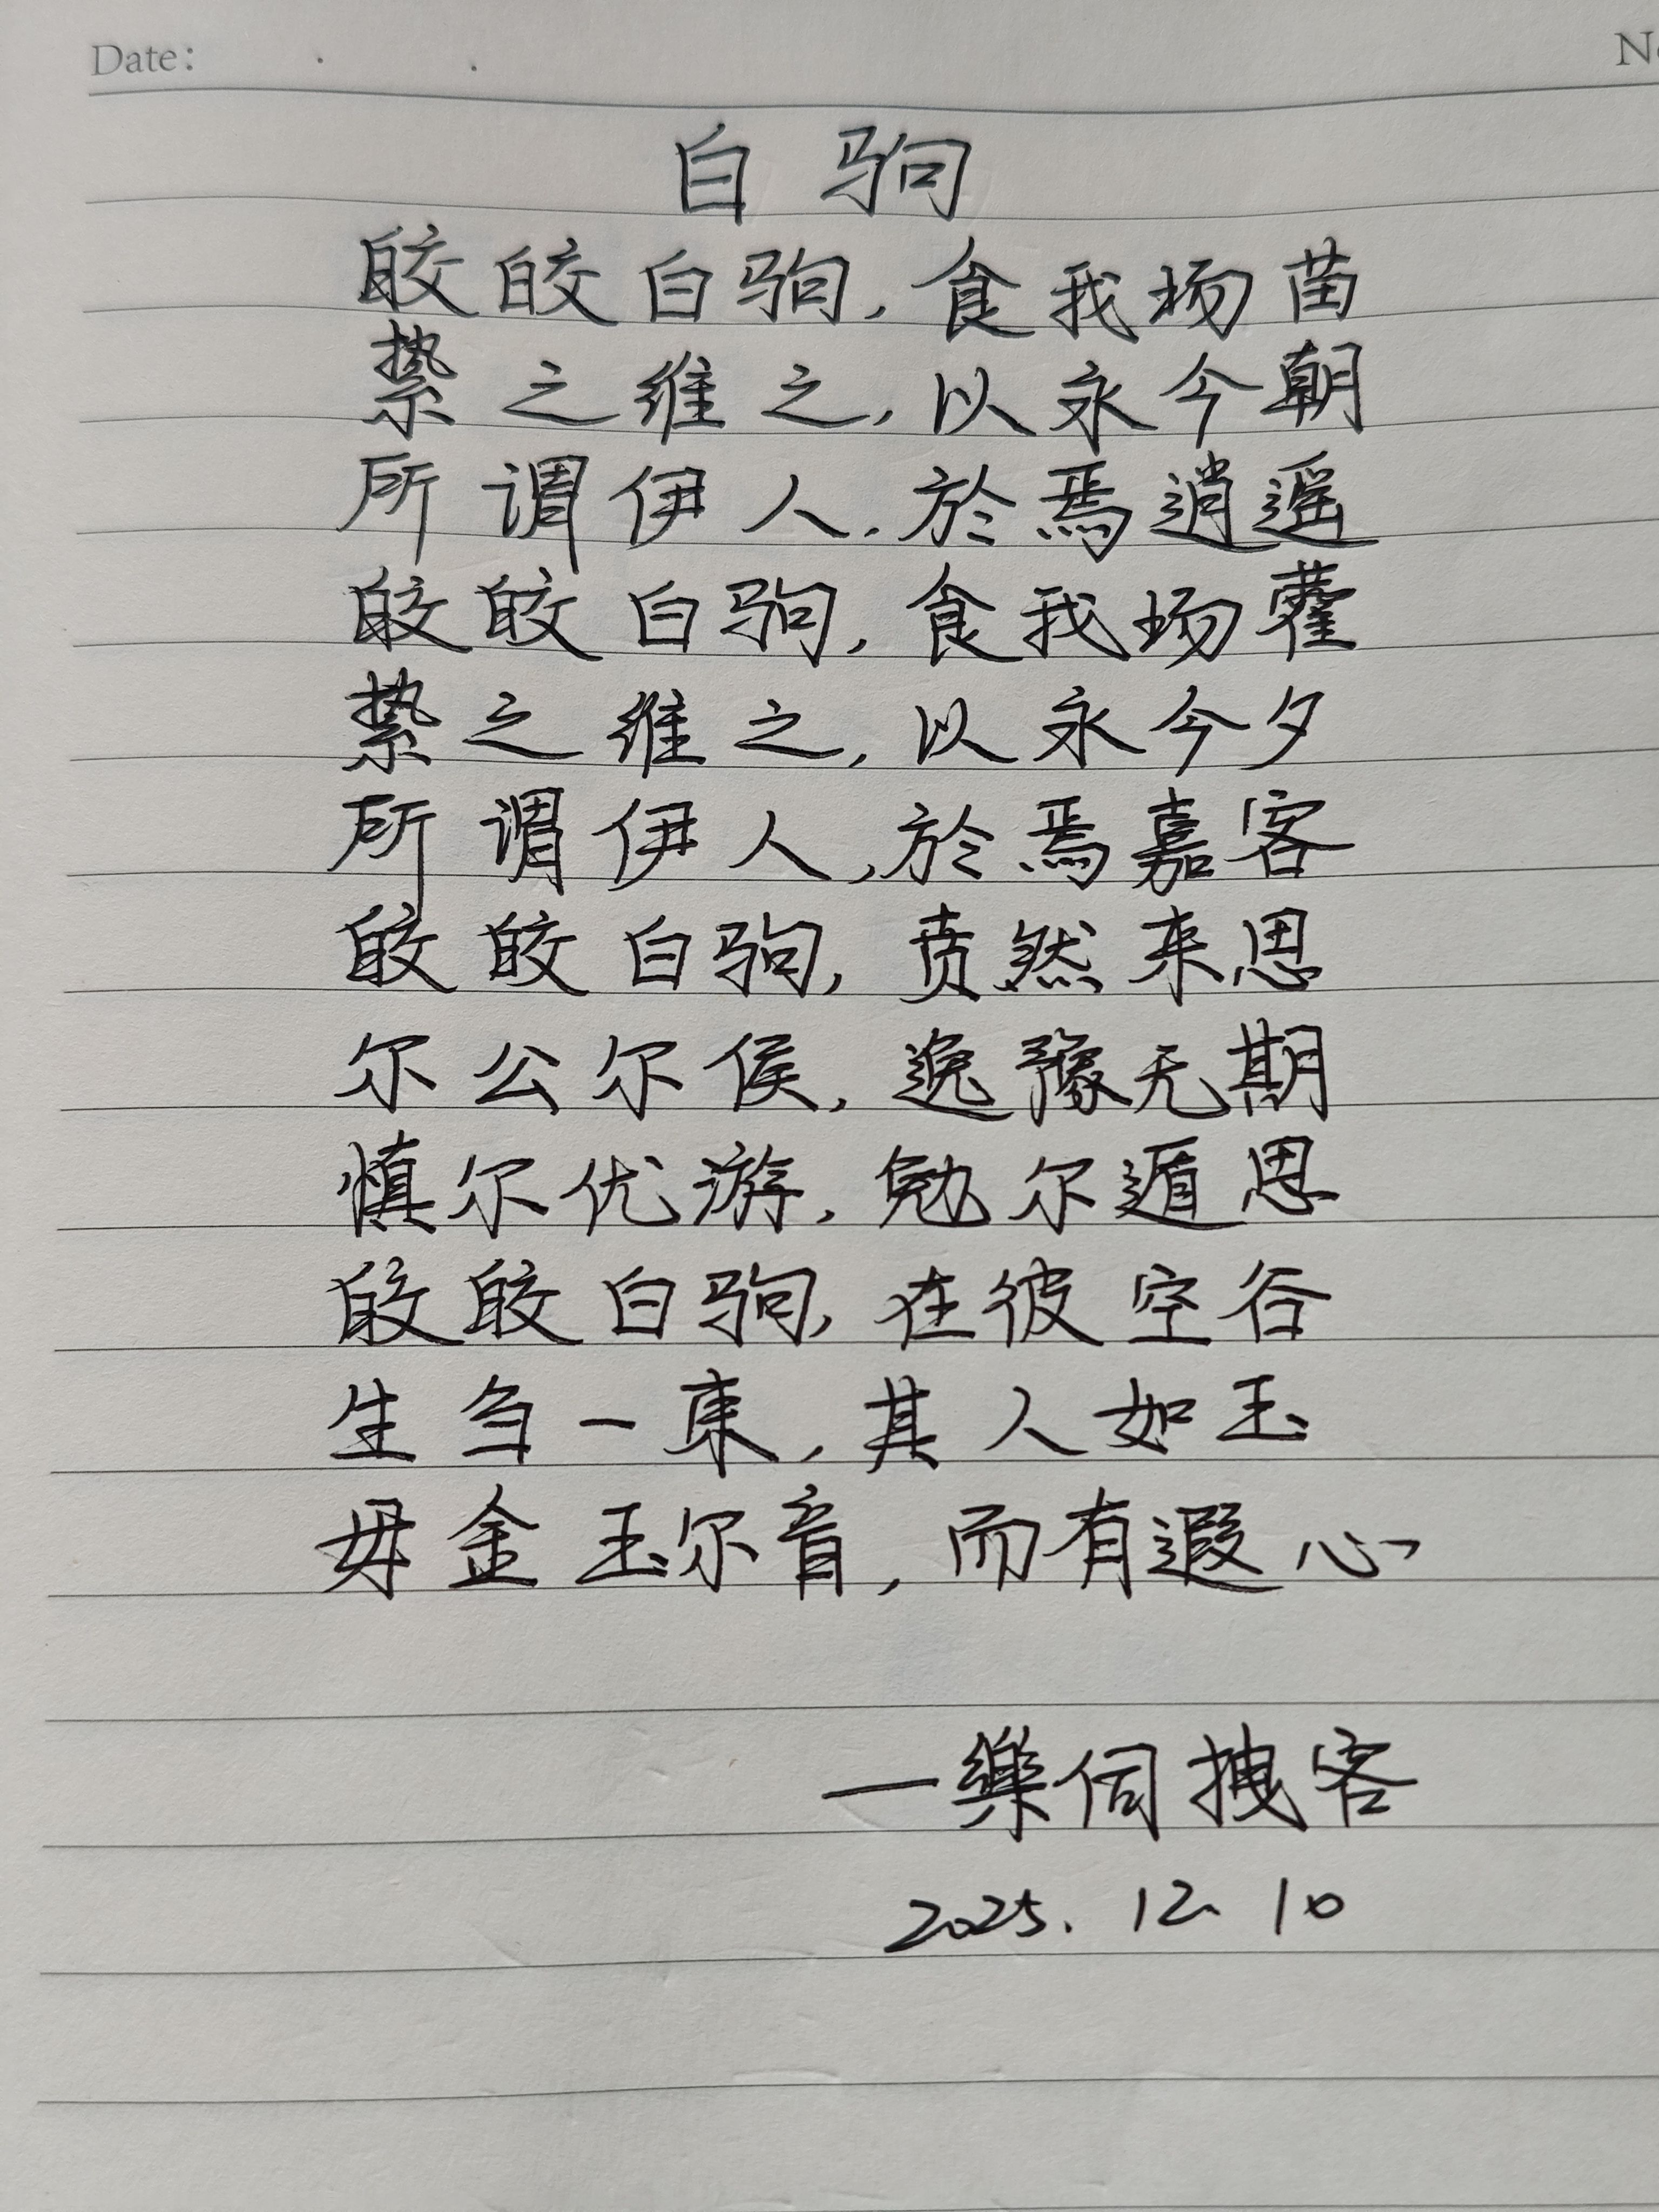 Date: . .
No
白驹
皎皎白驹,食我场苗
絷之维之,以永今朝
所谓伊人,於焉逍遥
皎皎白驹,食我场藿
絷之维之,以永今夕
所谓伊人,於焉嘉客
皎皎白驹,贲然来思
尔公尔侯,逸豫无期
慎尔优游,勉尔遁思
皎皎白驹,在彼空谷
生刍一束,其人如玉
毋金玉尔音,而有遐心
一樂伺拽客
2025.12.10